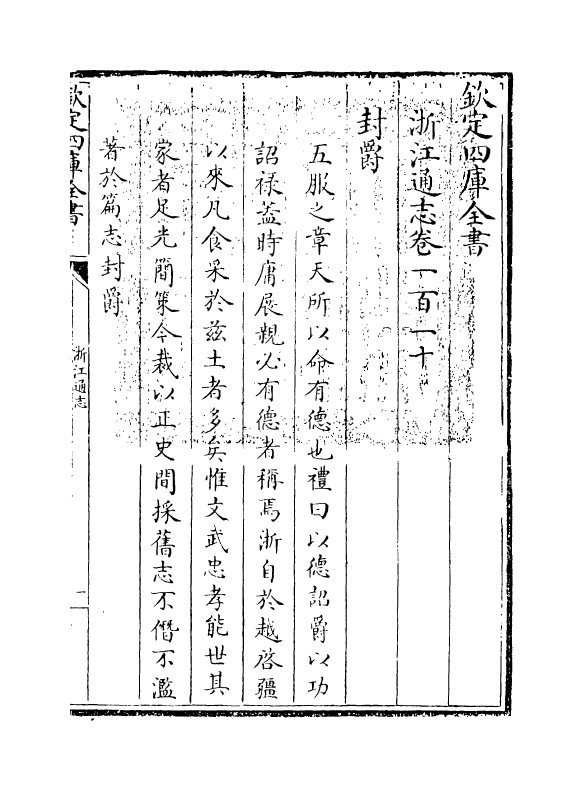 欽定四庫全書
浙江通志卷一百一十
封爵
五服之章天所以命有德也禮曰以德詔爵以功
詔祿葢時庸展親必有德者稱焉浙自於越啓疆
以來凡食采於兹土者多矣惟文武忠孝能世其
家者足光簡策今裁以正史間採舊志不僭不濫
著於篇志封爵
欽定四庫全書
浙江通志
一